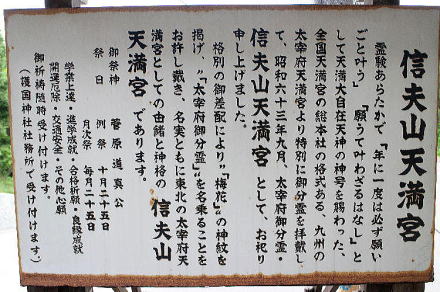 信夫山天満宮
霊験あらたかで「年に一度は必ず願い
ごと叶う」「願うて叶わざるはなし」と
して天満大自在天神の神号を賜わった、
全国天満宮の総本社の格式ある、九州の
太宰府天満宮より特別に御分霊を拝戴し
て、昭和六十三年九月、太宰府御分霊・
信夫山天満宮として、お祀り
申し上げました。
格別の御差配により〝梅花〟の神紋を
掲げ、〝太宰府御分霊〟を名乗ることを
お許し戴き、名実ともに東北の太宰府天
満宮としての由緒と神格の 信夫山
天満宮であります。
御祭神 菅原道真公
祭日 例祭 十月二十五日
月次祭 毎月二十五日
学業上達・進学成就・合格祈願・良縁成就
開運厄除・交通安全・その他心願
御祈祷随時受け付けます。
(護国神社社務所で受け付けます。)